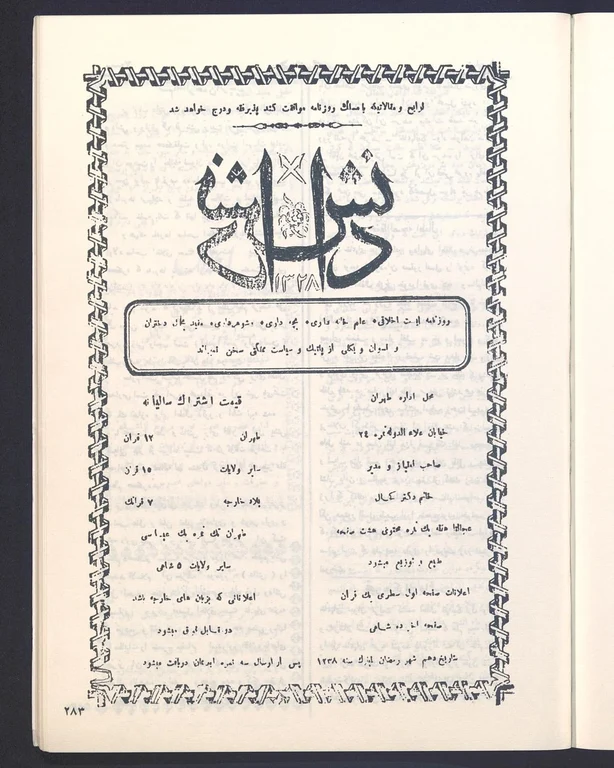 لوایح و مقالاتیکه با مسلك روزنامه موافقت کند پذیرفته و درج خواهد شد
دانش
۱۳۲۸
روزنامه ایست اخلاقی، علم خانه داری، بچه داری، شوهرداری، مفید بحال دختران
و نسوان و بکلی از پلتیك و سیاست مملکتی سخن نمیراند
محل اداره طهران
خیابان علاء الدوله نمره ۲٤
صاحب امتیاز و مدیر
خانم دکتر کحال
عجالتا هفته یك نمره محتوی هشت صفحه
طبع و توزیع میشود
اعلانات صفحه اول سطری یك قران
صفحه اخر ده شاهی
بتاریخ دهم شهر رمضان المبارك سنه
قیمت اشتراك سالیانه
طهران ۱۲ قران
سایر ولایات ۱٥ قران
بلاد خارجه ۷ فرانك
طهران تك نمره یك عباسی
سایر ولایات ٥ شاهی
اعلاناتی که بزبان های خارجه باشد
دو مقابل فوق میشود
پس از ارسال سه نمره ابونمان دریافت میشود
۲۸۳